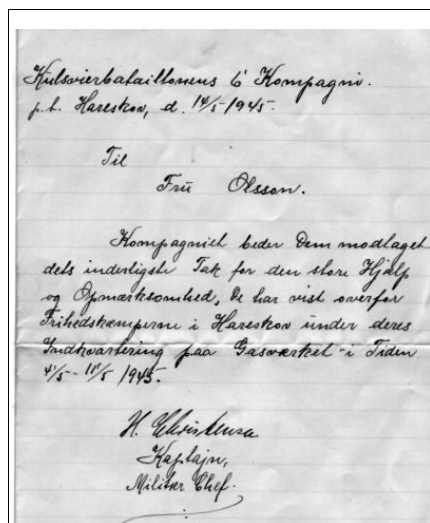 Kulsvierbataillonens 6' Kompagni.
p.t. Hareskov, d. 14/5-1945.
Til
Frü Olsson.
Kompagniet beder Dem modtaget
dets inderligste Tak for den store Hjælp
og Opmærksomhed, De har vist overfor
Frihedskæmperne i Hareskov ünder deres
Indkvartering paa Gasværket i Tiden
4/5 - 11/5 1945.
H. Christensen
Kaptajn,
Militær Chef.